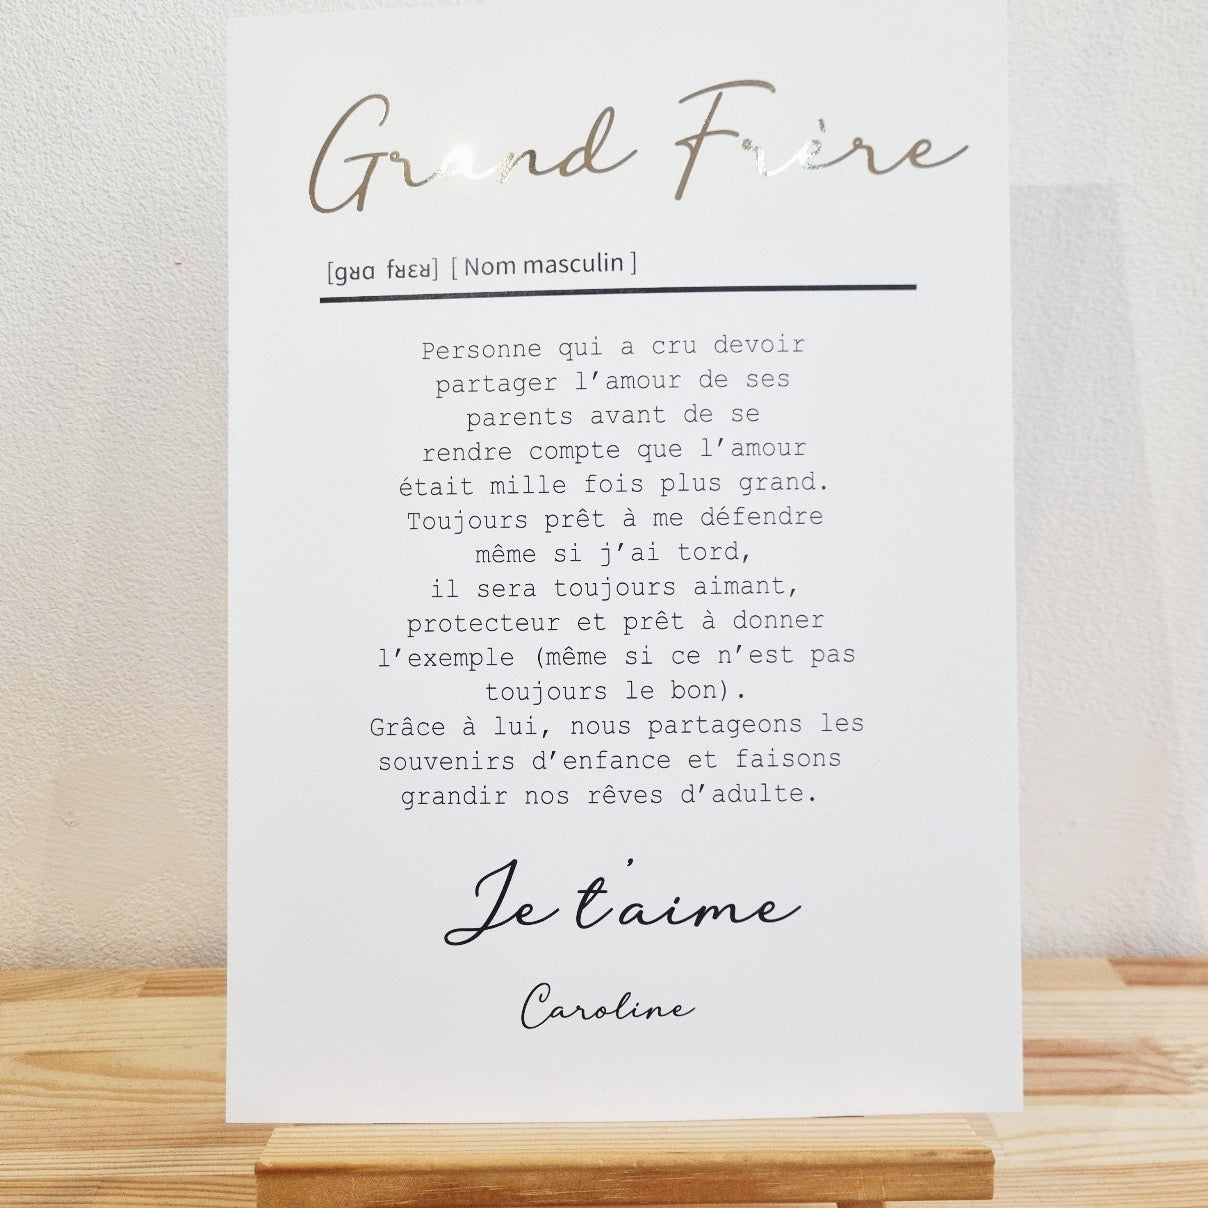 Grand Frère
[gʁɑ fʁɛʁ] [ Nom masculin ]
Personne qui a cru devoir
partager l’amour de ses
parents avant de se
rendre compte que l’amour
était mille fois plus grand.
Toujours prêt à me défendre
même si j’ai tord,
il sera toujours aimant,
protecteur et prêt à donner
l’exemple (même si ce n’est pas
toujours le bon).
Grâce à lui, nous partageons les
souvenirs d’enfance et faisons
grandir nos rêves d’adulte.
Je t'aime
Caroline